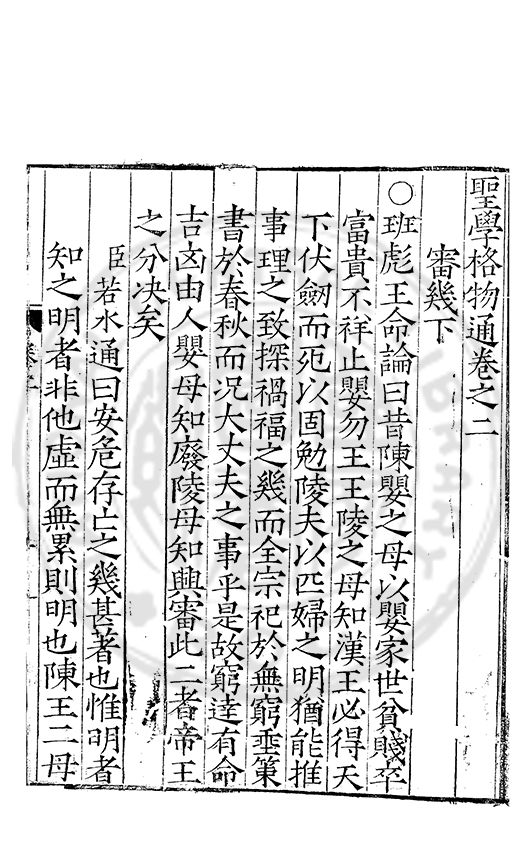 聖學格物通卷之二
審幾下
○班彪王命論曰昔陳嬰之母以嬰家世貧賤卒
富貴不祥止嬰勿王王陵之母知漢王必得天
下伏劒而死以固勉陵夫以匹婦之明猶能推
事理之致探禍福之幾而全宗祀於無窮垂策
書於春秋而况大丈夫之事乎是故窮達有命
吉凶由人嬰母知廢陵母知興審此二者帝王
之分决矣
臣若水通曰安危存亡之幾甚著也惟明者
知之明者非他虛而無累則明也陳王二母